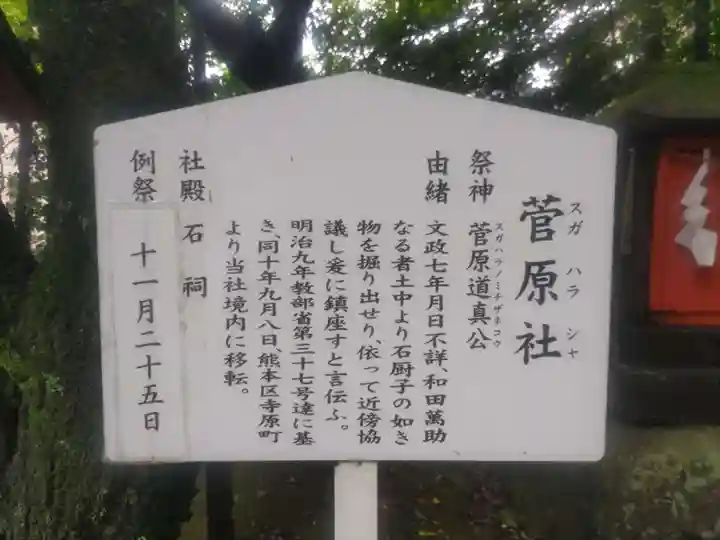 菅原社
スガハラシャ
祭神 菅原道真公
スガハラノミチザネコウ
由緒 文政七年月日不詳、和田萬助
なる者土中より石厨子の如き
物を掘り出せり、依って近傍協
議し爰に鎮座すと言伝ふ。
明治九年教部省第三十七号達に基
き、同十年九月八日、熊本区寺原町
より当社境内に移転。
社殿 石祠
例祭 十一月二十五日